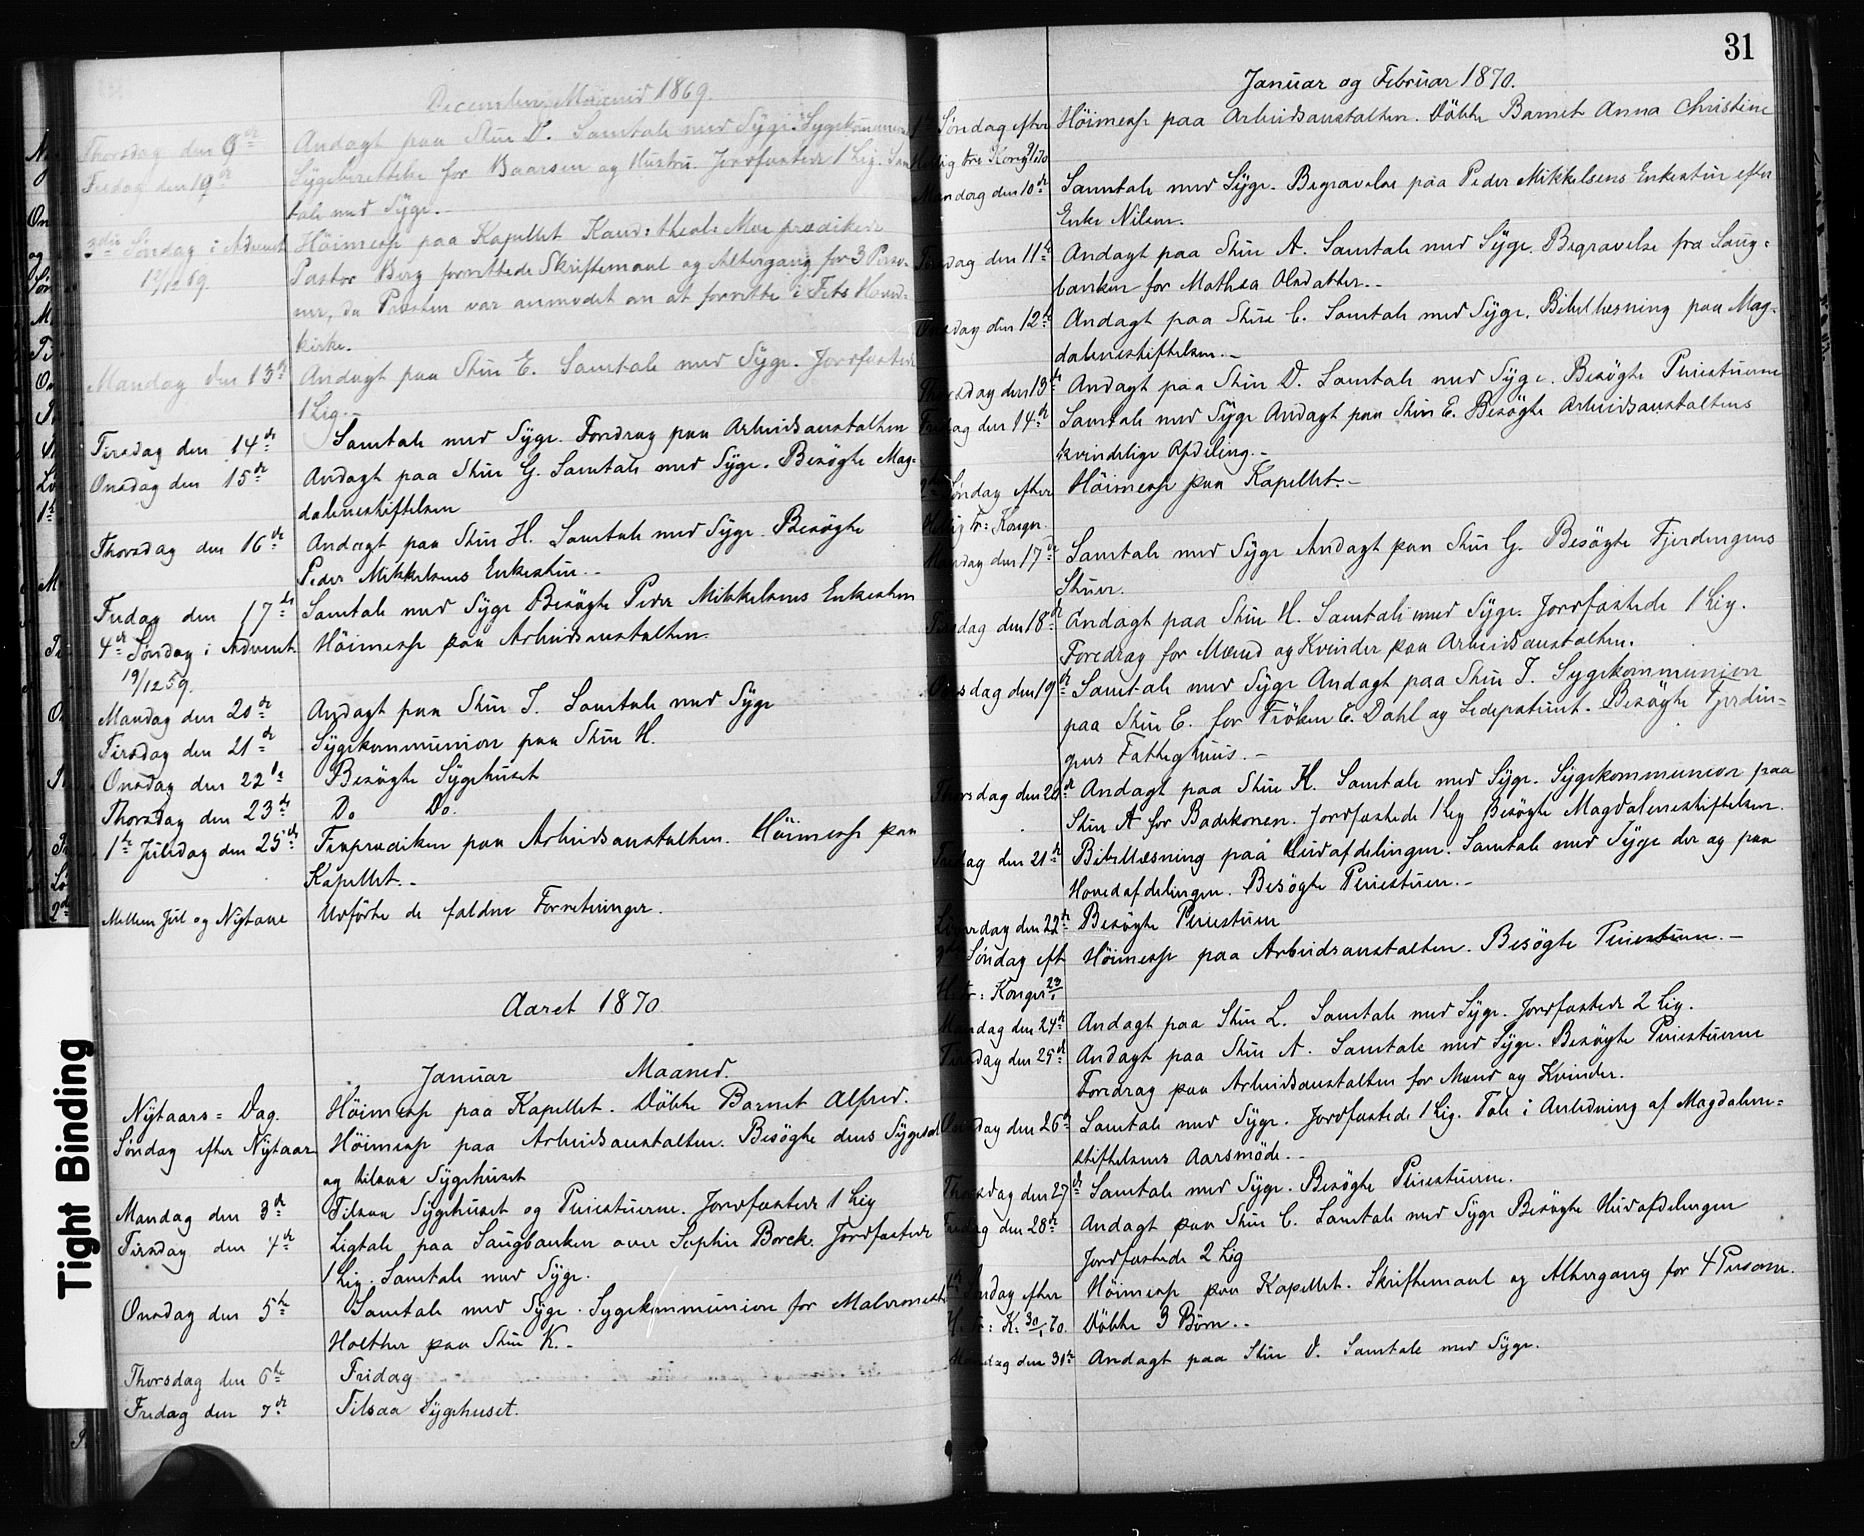 Decembers Maaned 1869.
Thorsdag den 9de Andagt paa Stue D. Samtale med Syge. Sygekommunion
Fredag den 10de Sygeberettelse for Baarsen og Hustru. Jordfæstede 1 Lig. Sam
tale med Syge.
3die Søndag i Advent Høimesse paa Kapellet Kand: theol: Moe prædikede
12/12 69 Pastor Berg forrettede Skriftemaal og Altergang for 3 Perso-
ner, da Præsten var anmodet om at forrette i Fets Hoved-
kirke.
Mandag den 13de Andagt paa Stue E. Samtale med Syge. Jordfæstede
1 Lig.
Tirsdag den 14de Samtale med Syge. Foredrag paa Arbeidsanstalten
Onsdag den 15de Andagt paa Stue G. Samtale med Syge. Besøgte Mag-
dalenestiftelsen
Thorsdag den 16de Andagt paa Stue H. Samtale med Syge. Besøgte
Peder Mikkelsens Enkestue.-
Fredag den 17de Samtale med Syge Besøgte Peder Mikkelsens Enkestue
4de Søndag i Advent Høimesse paa Arbeidsanstalten.
19/12 59.
Mandag den 20de Andagt paa Stue I. Samtale med Syge
Tirsdag den 21de Sygekommunion paa Stue H.
Onsdag den 22de Besøgte Sygehuset
Thorsdag den 23de Do Do.
1te Juledag den 25de Froprædiken paa Arbeidsanstalten. Høimesse paa
Kapellet.-
Mellem Jul og Nytaar Udførte de faldne Forretninger.
Aaret 1870
Januar Maaned.
Nytaars=Dag. Høimesse paa Kapellet. Døbte Barnet Alfred.
Søndag efter Nytaar Høimesse paa Arbeidsanstalten. Besøgte dens Sygesal
og tilsaa Sygehuset
Mandag den 3de Tilsaa Sygehuset og Pleiestuerne. Jordfæstede 1 Lig
Tirsdag den 4de Ligtale paa Saugbanken over Sophie Borck. Jordfæstede
1 Lig. Samtale med Syge.
Onsdag den 5te Samtale med Syge. Sygekommunion for Malermester
Holther paa Stue K.-
Thorsdag den 6te Fridag
Fredag den 7de Tilsaa Sygehuset.
Tight Binding
31
Januar og Februar 1870.
1te Søndag efter Høimesse paa Arbeidsanstalten. Døbte Barnet Anna Christine
Hellig tre Kong 9/1 70
Mandag den 10de Samtale med Syge. Begravelse paa Peder Mikkelsens Enkestue efter
Enke Nilsen.
Tirsdag den 11te Andagt paa Stue A. Samtale med Syge. Begravelse fra Saug-
banken for Mathea Olsdatter.-
Onsdag den 12te Andagt paa Stue C. Samtale med Syge. Bibellæsning paa Mag-
dalenestiftelsen.-
Thorsdag den 13de Andagt paa Stue D. Samtale med Syge. Besøgte Pleiestuerne
Fredag den 14de Samtale med Syge Andagt paa Stue E. Besøgte Arbeidsanstaltens
kvindelige Afdeling.-
2den Søndag efter Høimesse paa Kapellet.-
Hellig tr: Konger.
Mandag den 17de Samtale med Syge Andagt paa Stue G. Besøgte Fjerdingens
Stuer.
Tirsdag den 18de Andagt paa Stue H. Samtale med Syge. Jordfæstede 1 Lig.
Foredrag for Mænd og Kvinder paa Arbeidsanstalten.
Onsdag den 19de Samtale med Syge Andagt paa Stue I. Sygekommunion
paa Stue E. for Frøken C. Dahl og Sidepatient. Besøgte Fjerdin-
gens Fattighuus.-
Thorsdag den 20de Andagt paa Stue K. Samtale med Syge. Sygekommunion paa
Stue A for Badekonen. Jordfæstede 1 Lig Besøgte Magdalenestiftelsen.
Fredag den 21de Bibellæsning paa Hudafdelingen. Samtale med Syge der og paa
Hovedafdelingen. Besøgte Pleiestuen.-
Løverdag den 22de Besøgte Pleiestuen
Søndag eft Høimesse paa Arbeidsanstalten. Besøgte Pleiestuen.-
H. tr: Konger 23/1
Mandag den 24de Andagt paa Stue L. Samtale med Syge. Jordfæstede 2 Lig.
Tirsdag den 25de Andagt paa Stue A. Samtale med Syge. Besøgte Pleiestuerne
Foredrag paa Arbeidsanstalten for Mænd og Kvinder.
Onsdag den 26de Samtale med Syge. Jordfæstede 1 Lig. Tale i Anledning af Magdalene-
stiftelsens Aarsmøde.-
Thorsdag den 27de Samtale med Syge. Besøgte Pleiestuerne.
Fredag den 28de Andagt paa Stue C. Samtale med Syge Besøgte Hudafdelingen
Jordfæstede 2 Lig
Søndag efter Høimesse paa Kapellet. Skriftemaal og Altergang for 4 Personer.
H. tr: K: 30/1 70. Døbte 3 Børn.-
Mandag den 31te Andagt paa Stue D. Samtale med Syge.